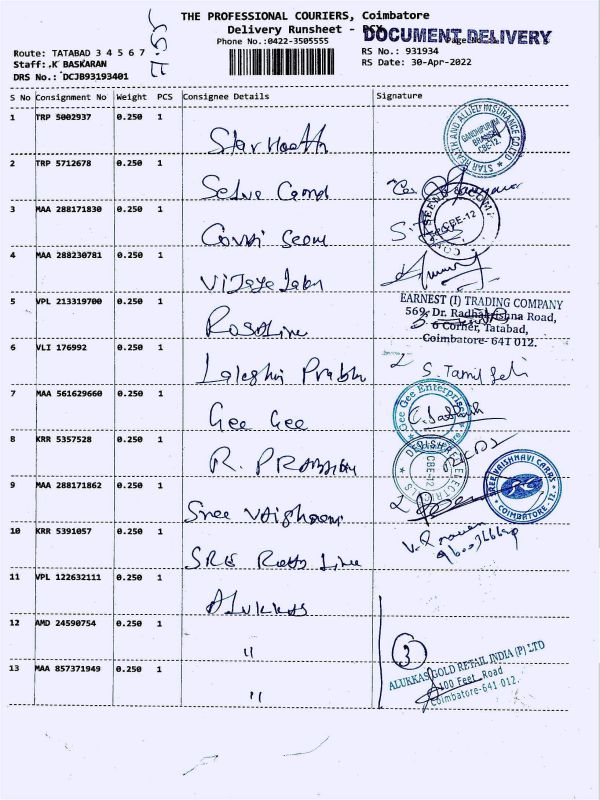 THE PROFESSIONAL COURIERS, Coimbatore
Delivery Runsheet - DOX
DOCUMENT DELIVERY
Phone No.:0422-3505555
Route: TATABAD 3 4 5 6 7
RS No.: 931934
Staff:.K BASKARAN
RS Date: 30-Apr-2022
DRS No.: DCJB93193401
S No Consignment No Weight PCS Consignee Details Signature
1 TRP 5002937 0.250 1 Star Health
STAR HEALTH AND ALLIED INSURANCE CO LTD
GANDHIPURAM
BRANCH
CBE-12.
2 TRP 5712678 0.250 1
3 MAA 288171830 0.250 1
CBE-12
4 MAA 288230781 0.250 1 Vijaya
5 VPL 213319700 0.250 1 Roso Line
EARNEST (I) TRADING COMPANY
569, Dr. Radhakrishna Road,
6 Corner, Tatabad,
Coimbatore- 641 012.
6 VLI 176992 0.250 1 Prabhu
S. Tamil
7 MAA 561629660 0.250 1 Gee Gee
Gee Gee Enterprises
8 KRR 5357528 0.250 1 R.
CBE-12
9 MAA 288171862 0.250 1 Sree
SREE VAISHNAVI CARRS
COIMBATORE - 12.
10 KRR 5391057 0.250 1 Line
11 VPL 122632111 0.250 1 Alukkas
12 AMD 24590754 0.250 1 "
3
13 MAA 857371949 0.250 1 "
ALUKKAS GOLD RETAIL INDIA (P) LTD
100 Feet Road
Coimbatore-641 012.